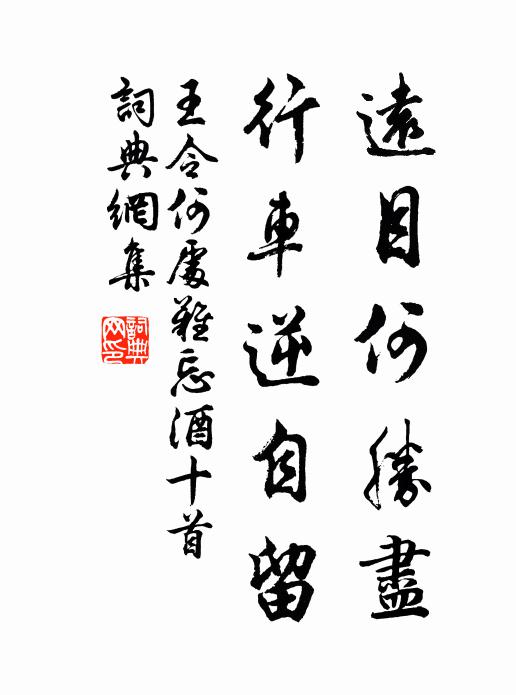 遠目何勝盡
行車逆自留
王令何處難忘酒十首
詞典網集
詞典網印